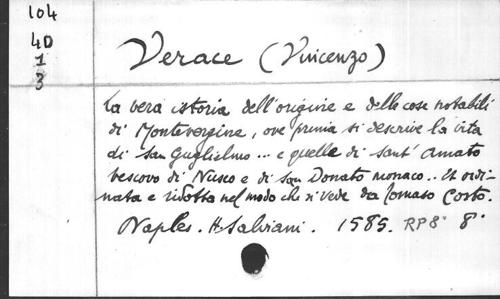 104
4D
1
3
Verace (Vincenzo)
La vera istoria dell'origine e delle cose notabili
di Montevergine, ove prima si descrive la vita
di San Guglielmo... e quella di Sant' Amato
vescovo di Nusco e di San Donato monaco.. Et ordi-
nata e ridotta nel modo che si vede da Tomaso Costo.
Naples. H. Salviani. 1585. RP8° 8°